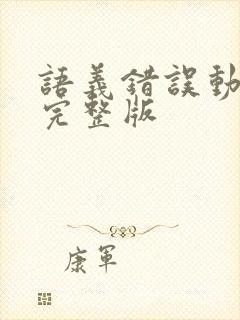 語義錯誤動
完整版
康軍